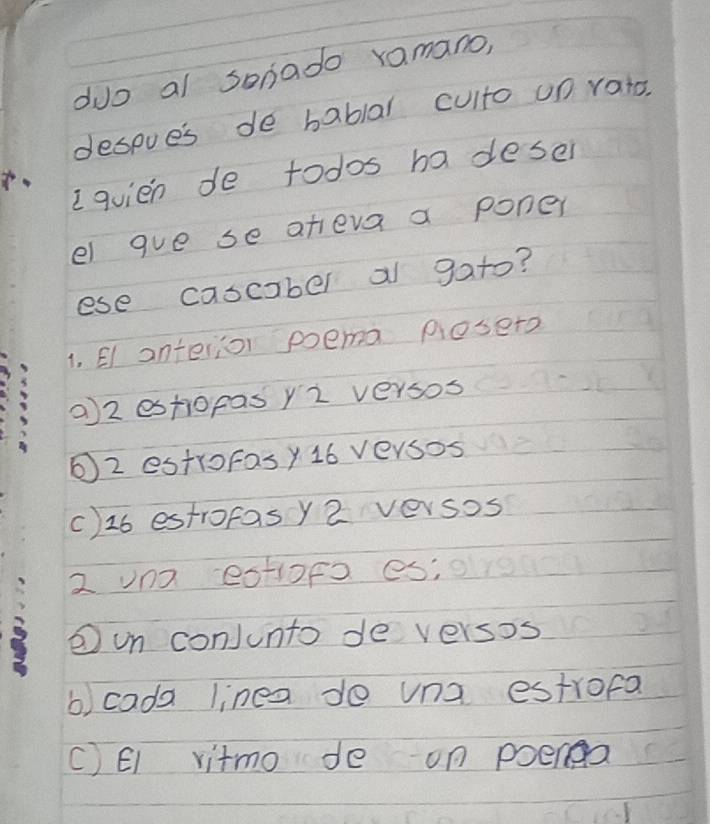 dijo al sonado ramano,
despues de hablal culto un rato.
¿quién de todos ha desel
el que se atieva a ponel
ese cascabel al gato?
1. El antelioi poema pioseta
a) 2 estiofas y 2 versos
b) 2 estrofas y 16 versos
c) 16 estrofas y 2 versos
2 una estiofa es:
a) un conjunto de versos
b) cada linea de una estrofa
C) El ritmo de un poema